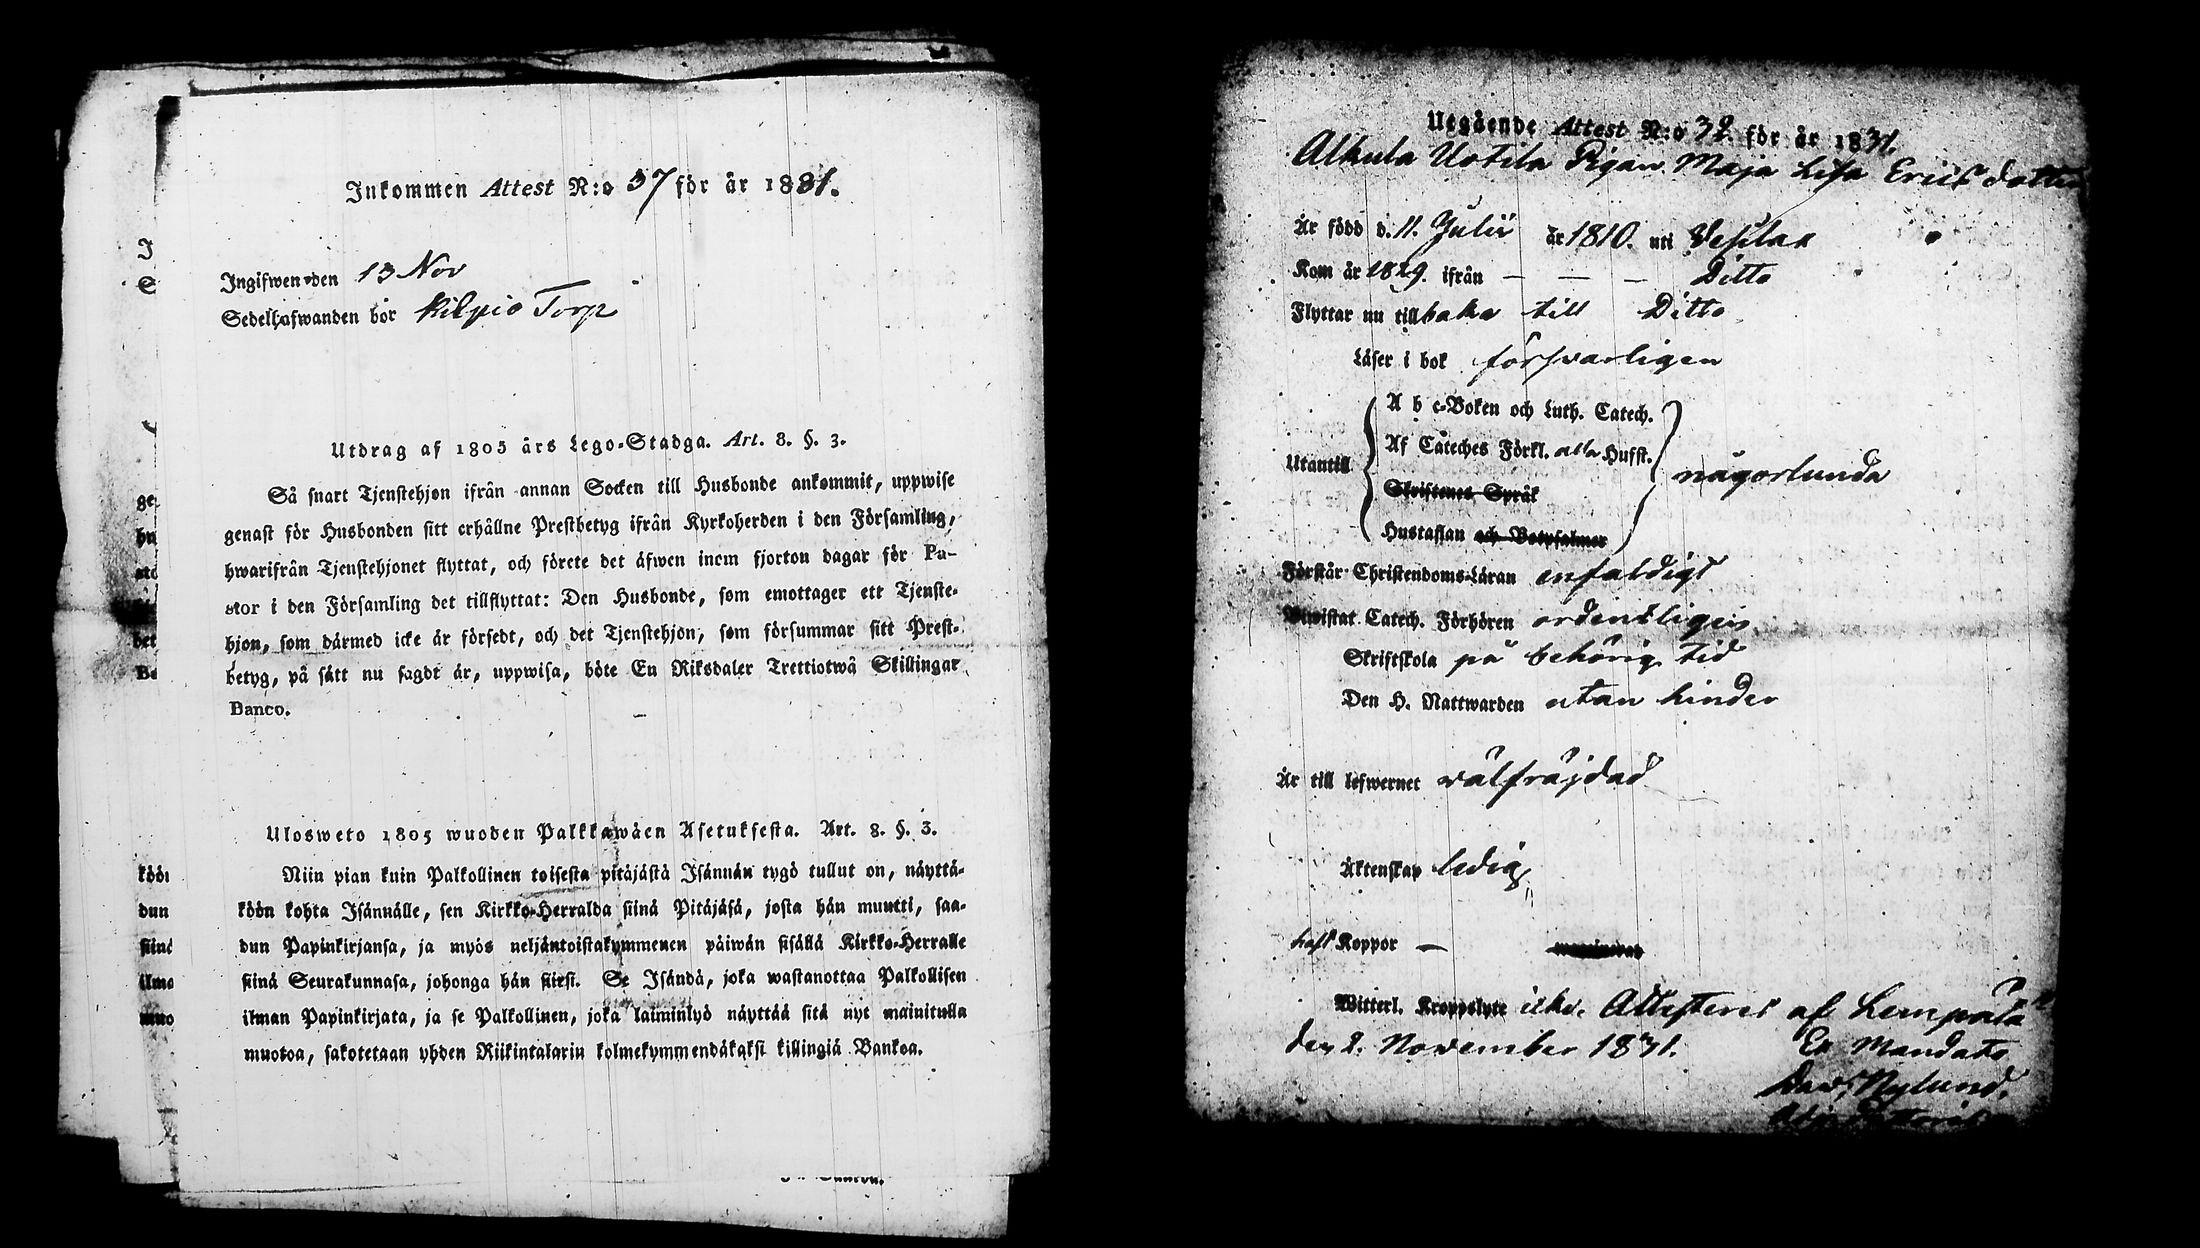 Inkommen Attest N:o 37 för år 1831.
Ingifwen den 13 Nov
Sedelhafwanden bor Kilpio Torp
Utdrag af 1805 års Lego-Stadga. Art. 8. §. 3.
Så snart Tjenstehjon ifrån annan Socken till Husbonde ankommit, uppwise
genast för Husbonden sitt erhållne Prestbetyg ifrån Kyrkoherden i den Församling,
hwarifrån Tjenstehjonet flyttat, och förete det äfwen inom fjorton dagar för Pa-
stor i den Församling det tillflyttat: Den Husbonde, som emottager ett Tjenste-
hjon, som därmed icke är försedt, och det Tjenstehjon, som försummar sitt Prest-
betyg, på sätt nu sagdt är, uppwisa, böte En Riksdaler Trettiotwå Skillingar
Banco.
Ulosweto 1805 wuoden Palkkawäen Asetuksesta. Art. 8. §. 3.
Niin pian kuin Palkollinen toisesta pitäjästä Isännän tygö tullut on, näyttä-
köön kohta Isännälle, sen Kirkko-Herralda siinä Pitäjäsä, josta hän muutti, saa-
dun Papinkirjansa, ja myös neljäntoistakymmenen päiwän sisällä Kirkko-Herralle
siinä Seurakunnasa, johonga hän siirsi. Se Isändä, joka wastanottaa Palkollisen
ilman Papinkirjata, ja se Palkollinen, joka laiminlyö näyttää sitä nyt mainitulla
muotoa, sakotetaan yhden Riikintalarin kolmekymmendäkaksi killingiä Bankoa.
Utgående Attest N:o 32 för år 1831.
Alkula Uotila Pigan Maja Lisa Ericsdotter
Är född d. 11. Julii år 1810. uti Vesilax
Kom år 1829. ifrån — — — Ditto
Flyttar nu tillbaka till Ditto
Läser i bok försvarligen
A b c-Boken och Luth. Catech.
Af Cateches Förkl. alla Hufst.
Utantill
någorlunda
Skriftenes Språk
Hustaflan och Botpsalmer
Förstår Christendoms-Läran enfaldigt
Bewistat Catech. Förhören ordentligen
Skriftskola på behörig tid
Den H. Nattwarden utan hinder
Är till lefwernet wälfräjdad
Äktenskap ledig
haft Koppor —
Witterl. Kroppslyte icke. Attesteras af Lempäälä
den 2. November 1831. Ex Mandato
Dav. Nylund.